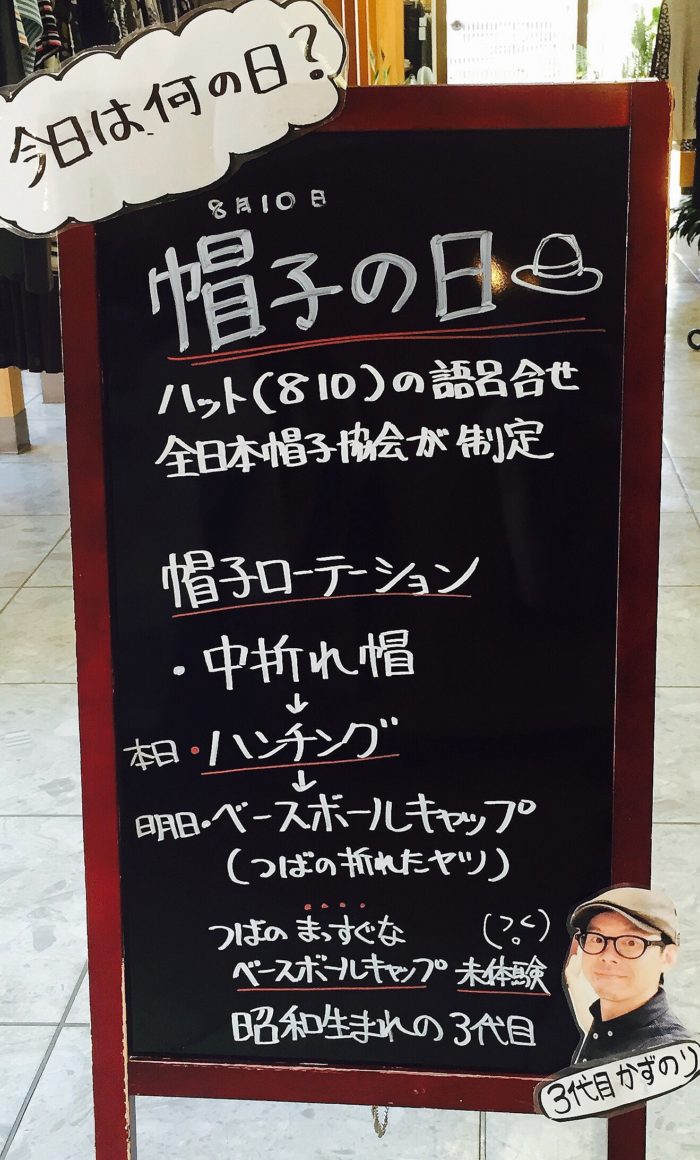 今日は何の日?
8月10日
帽子の日
ハット(810)の語呂合せ
全日本帽子協会が制定
帽子ローテーション
・中折れ帽
↓
本日・ハンチング
↓
明日・ベースボールキャップ
(つばの折れたヤツ)
つばの まっすぐな
ベースボールキャップ 未体験
昭和生まれの3代目
3代目かずのり